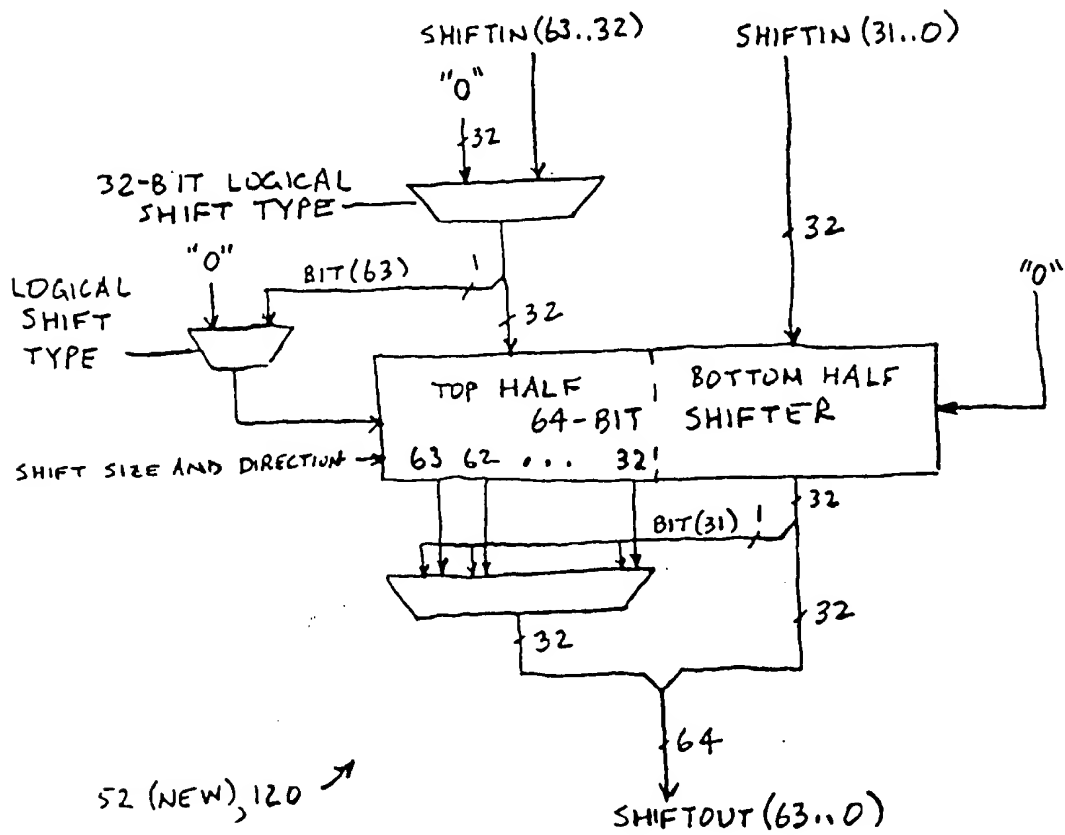 SHIFTIN(63..32)
SHIFTIN(31..0)
"0"
32
32-BIT LOGICAL
SHIFT TYPE
32
"0"
BIT(63)
1
"0"
LOGICAL
SHIFT
TYPE
32
TOP HALF
BOTTOM HALF
64-BIT SHIFTER
SHIFT SIZE AND DIRECTION
63 62 ... 32
32
BIT(31)
1
32
32
64
52 (NEW), 120
SHIFTOUT(63..0)